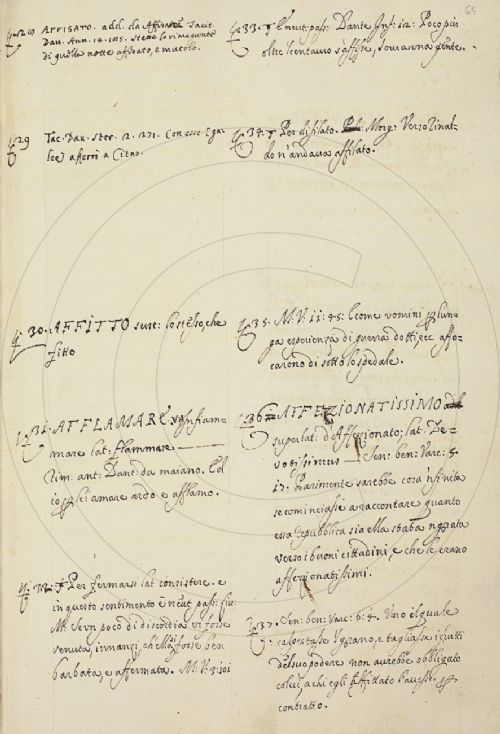 69
28 AFFISATO. add. da Affisare. Tacit.
Dav. Ann. 14. 185. Stette lo rimanente
di quella notte affisato, e mutolo.
29 Tac. Dav. Stor. 2. 271. Con esse (ga-
lee) afferrò a Citno.
30. AFFITTO sust: lo stesso, che
fitto
31. AFFLAMARE infiam-
mare lat: flammare
Rim: ant: Dant: da maiano. Ed
io sì amare ardo e afflamo.
32. Per fermarsi lat consistere. e
in questo sentimento è neut. pass:
M. Se un poco di discordia vi fosse
venuta, innanzi, ch'Ella fosse ben
barbata, e affermata. M. V. 3. 101
33. neut. pass: Dante Inf: 12: Poco più
oltre l centauro s'affisse, sovra una gente.
34. Per difilato. Morg: Verso Rinal-
do n'andava affilato.
35. M: V: 11: 45: Come uomini per lun-
ga esperienza di guerra dotti, ec affo-
carono di sotto lo spedale.
36. AFFEZIONATISSIMO
superlat: d'Affezionato; lat: De-
votissimus Sen: ben: Varc: 5.
17: Parimente sarebbe cosa 'nfinita
se cominciassi a raccontare quanto
essa Repubblica sia ella stata ngrata
verso i buoni cittadini, e che le erano
affezionatissimi.
37. Sen: ben: Varc: 6: 4. Uno il quale
calpestasse, e tagliasse i frutti
del suo podere non avrebbe obbligato
colui, a chi egli affittato l'avesse per
contratto.